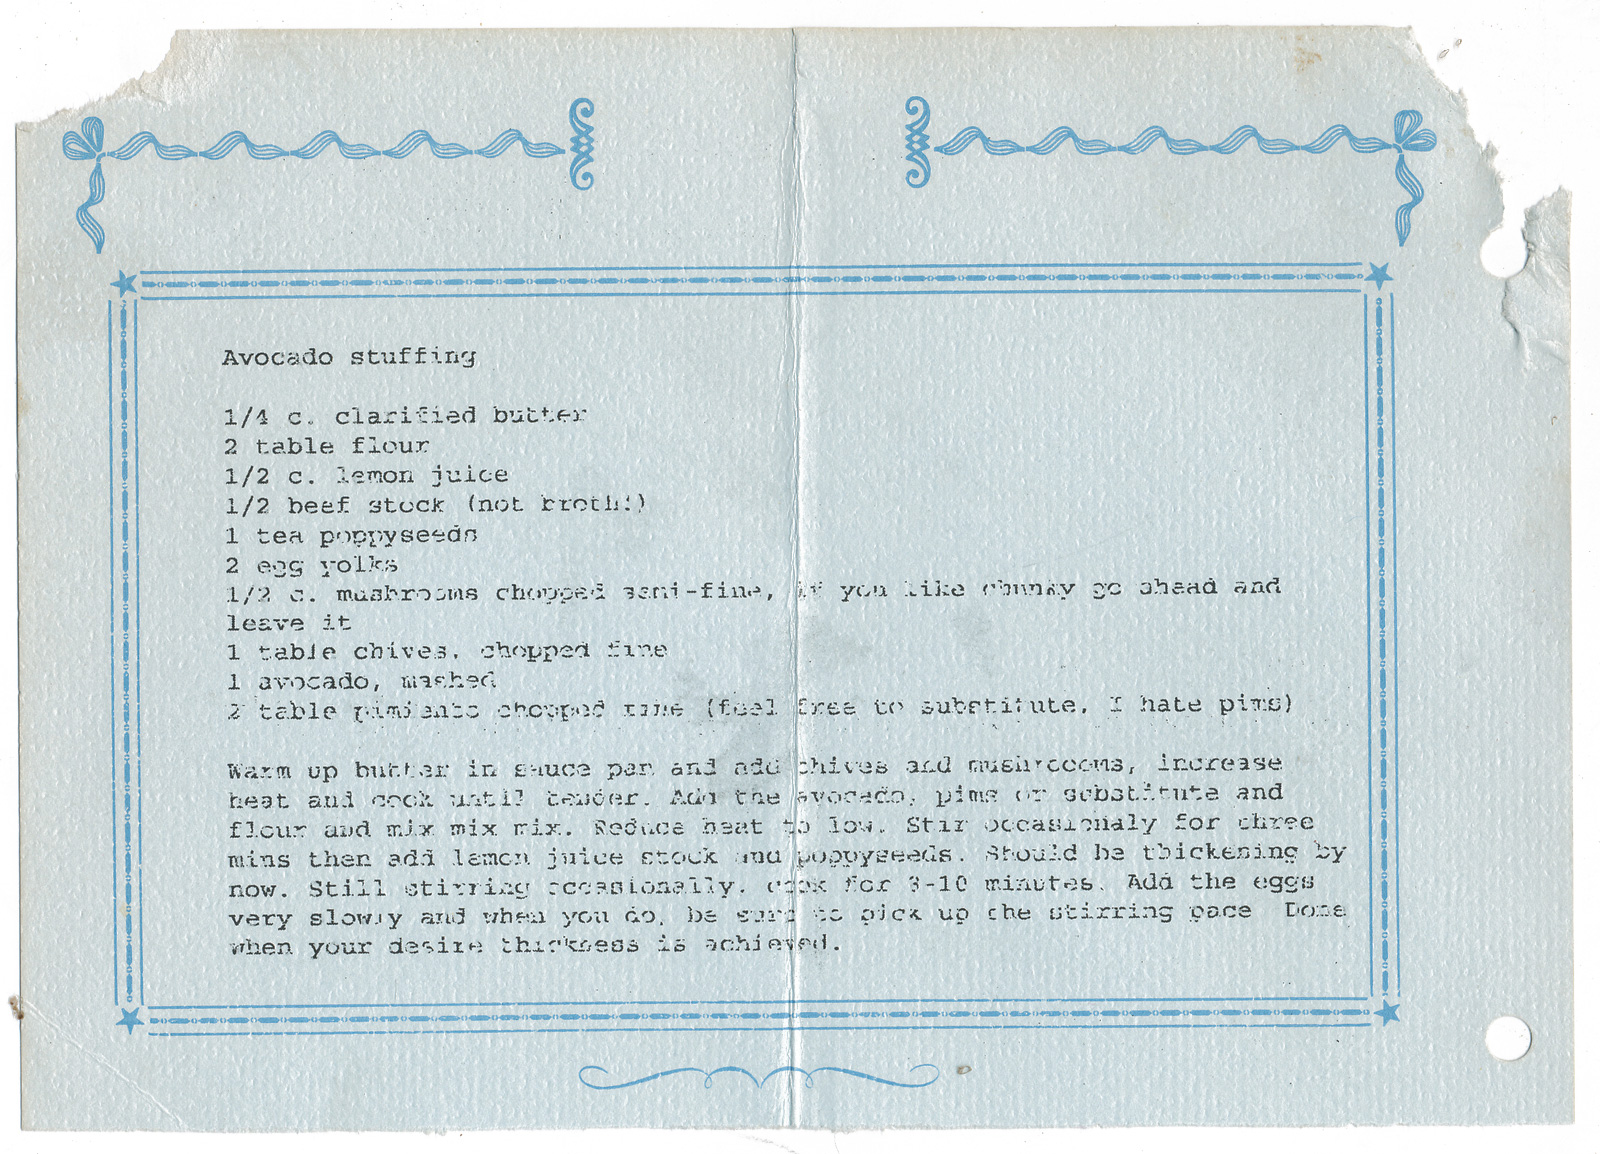 Avocado stuffing
1/4 c. clarified butter
2 table flour
1/2 c. lemon juice
1/2 beef stock (not broth!)
1 tea poppyseeds
2 egg yolks
1/2 c. mushrooms chopped semi-fine, if you like chunky go ahead and
leave it
1 table chives, chopped fine
1 avocado, mashed
2 table pimiento chopped fine (feel free to substitute, I hate pims)
Warm up butter in sauce pan and add chives and mushrooms, increase
heat and cook until tender. Add the avocado, pims or substitute and
flour and mix mix mix. Reduce heat to low. Stir occasionaly for three
mins then add lemon juice stock and poppyseeds. Should be thickening by
now. Still stirring occasionally, cook for 8-10 minutes. Add the eggs
very slowly and when you do, be sure to pick up the stirring pace Done
when your desire thickness is achieved.